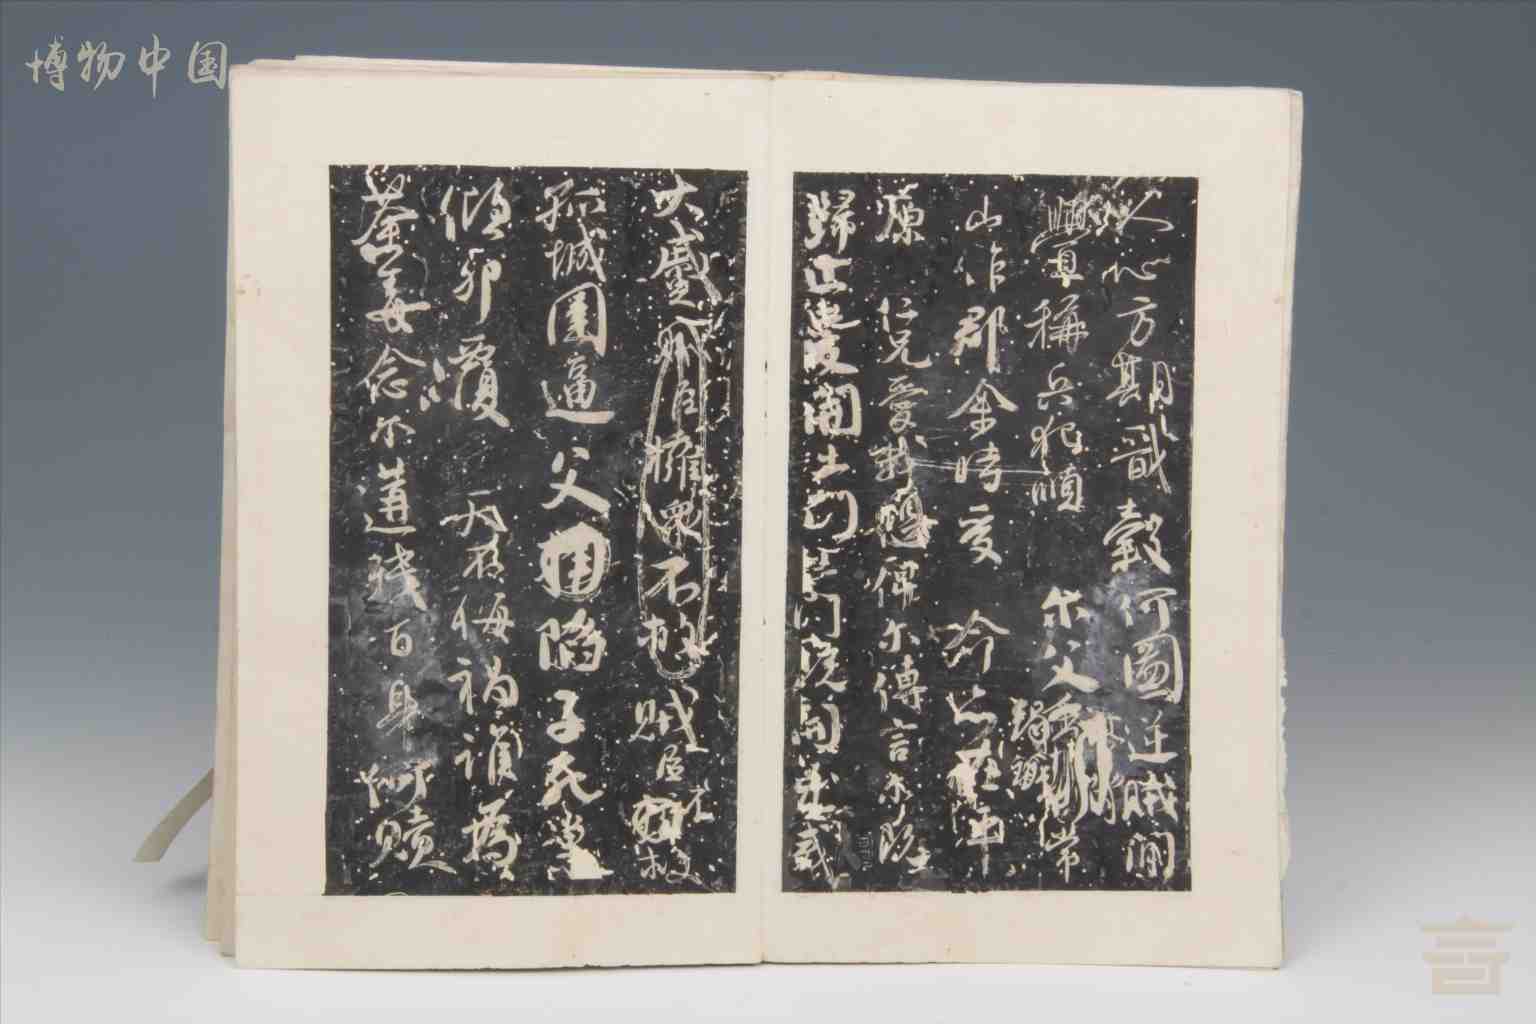 博物中国
人心方期戩穀何圖逆賊閒
釁稱兵犯順尔父竭誠常
山作郡余時受命亦在平
原仁兄愛我俾尔傳言尔既
歸止爰開土門土門既開凶威
大蹙賊臣擁衆不救賊臣不救
孤城圍逼父陷子死巢
傾卵覆天不悔禍誰為
荼毒念尔遘殘百身何贖